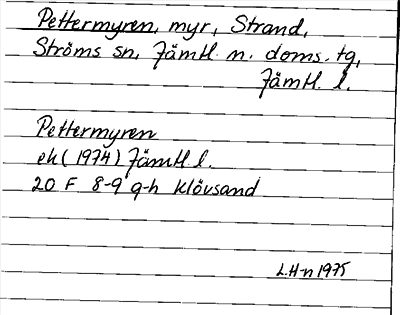 Pettermyren, myr, Strand,
Ströms sn, Jämtl. n. doms. tg,
Jämtl. l.
Pettermyren
ek (1974) Jämtl. l.
20 F 8-9 g-h Klövsand
L.H-n 1975